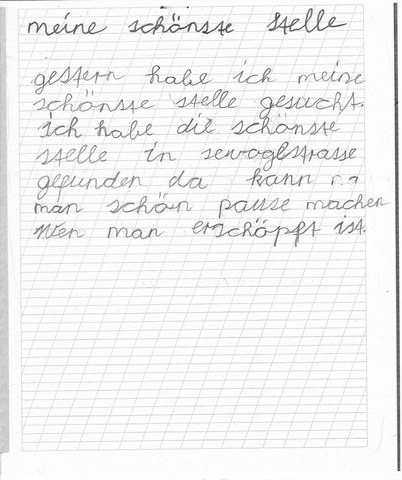 meine schönste stelle
gestern habe ich meine
schönste stelle gesucht.
ich habe die schönste
stelle in sevoglstrasse
gefunden da kann
man schön pause machen
wen man erschöpft ist.